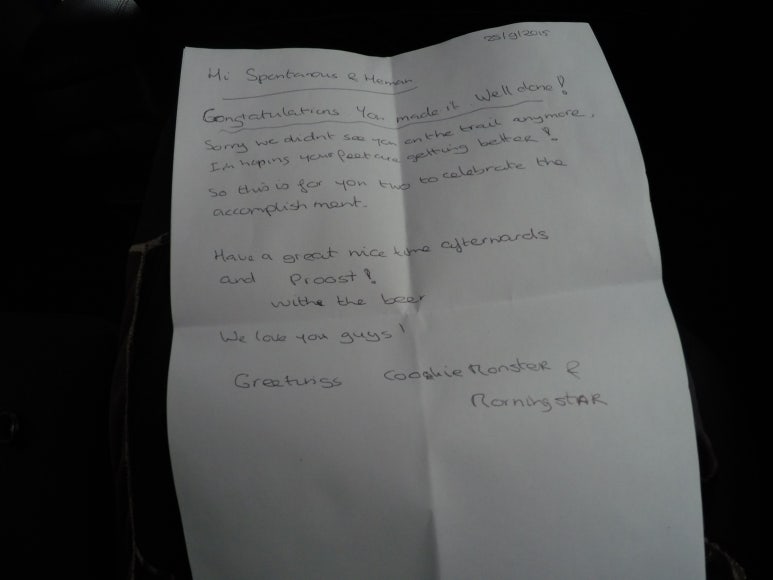 25/9/2015
Hi Spontanous & Heman
Congratulations. You made it. Well done!
Sorry we didn't see you on the trail anymore.
I'm hoping your feet are getting better!
So this is for you two to celebrate the
accomplishment.
Have a great nice time afterwards
and Proost!
with the beer
We love you guys!
Greetings Cookie Monster &
Morningstar